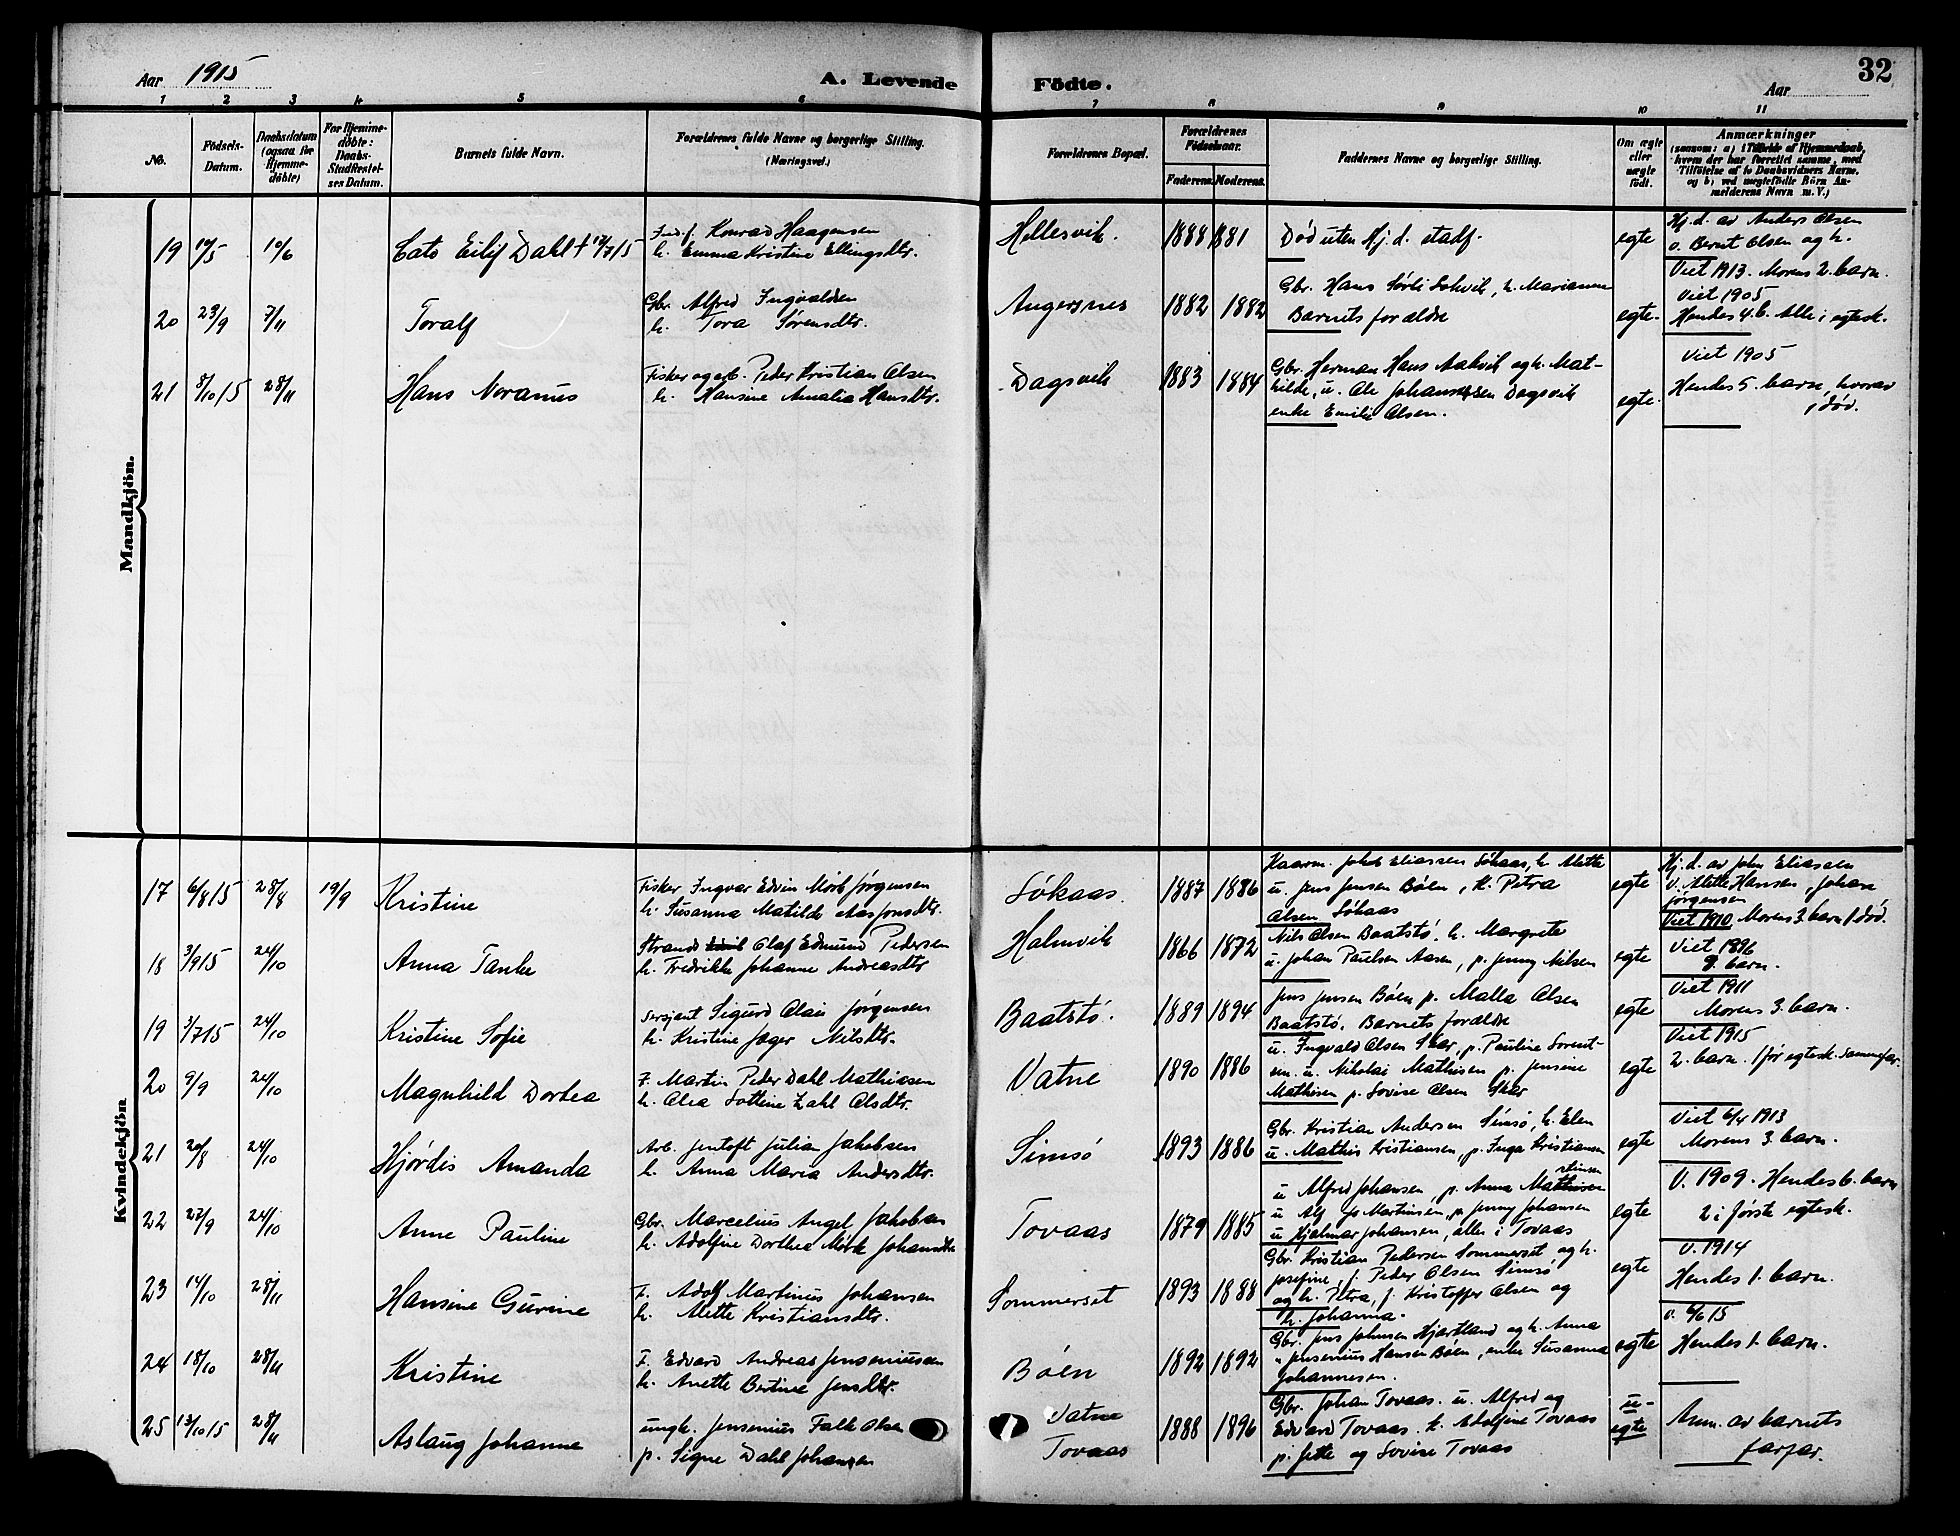 Aar 1915
A. Levende
Födte.
Aar
32
1 2 3 4 5 6 7 8 9 10 11
No.
Födsels-Datum.
Daabsdatum (ogsaa for Hjemme-döbte)
For Hjemme-döbte: Daabs-Stadfæstel-ses Datum.
Barnets fulde Navn.
Forældrenes fulde Navne og borgerlige Stilling.
(Næringsvei.)
Forældrenes Bopæl.
Forældrenes Födselsaar.
Faderens. Moderens.
Faddernes Navne og borgerlige Stilling.
Om ægte eller uægte födt.
Anmærkninger
(saasom: a) i Tilfælde af Hjemmedaab, hvem der har forrettet samme, med Tilföielse af to Daabsvidners Navne, og b) ved uægtefödte Börn Anmelderens Navn m. V.)
Mandkjön.
19 10/5 10/6 Cato Eilif Dahl + 12/7 15
Konrad Haagensen
h. Emma Kristine Ellingsdtr.
Hellesvik. 1888 1881
Död uten Hj. d. stadf.
egte
Hj. d. av Anders Olsen
o. Bernt Olsen og h.
Viet 1913. Morens 2. barn.
20 23/9 7/11 Toralf
Gbr. Alfred Ingvaldsen
h. Tora Sørensdtr.
Angersnes 1882 1882
Gbr. Hans Sørli Sokvik, h. Marianne
Barnets forældre
egte.
Viet 1905
Hendes 4. b. Alle i egtesk.
21 8/10 15 28/11 Hans Noranus
Fisker og arb. Peder Kristian Olsen
h. Hansine Amalia Hansdtr.
Dagsvik 1883 1884
Gbr. Herman Hans Aakvik og h. Mat-
hilde, u. Ole Johansen Dagsvik
enke Emilie Olsen.
egte.
Viet 1905
Hendes 5. barn, hvorav
1 död.
Kvindekjön
17 6/8 15 28/8 19/9 Kristine
Fisker Ingvar Edvin Mörk Jörgensen
h. Susanna Matilde Aasjonsdtr.
Sökaas. 1887 1886
Kaarm. Johs Eliassen Sökaas, h. Alette
u. Jens Jensen Böen, h. Petra
Olsen Sökaas
egte
Hj. d. av John Eliasen
v. Alette Hansen, Johan
Jörgensen
Viet 1910 Morens 3. barn 1. död.
18 3/9 15 24/10 Anna Tanke
Strands Olaf Edmund Pedersen
h. Fredrikke Johanne Andreasdtr
Halmvik 1866 1872
Nils Olsen Baatstö. h. Margrete
u. Johan Paulsen Aasen, p. Jenny Nilsen
egte
Viet 1896
9. barn.
19 3/7 15 24/10 Kristine Sofie
Sersjant Sigurd Olai Jörgensen
h. Kristine Jæger Nilsdtr.
Baatstö. 1889 1894
Jens Jensen Böen p. Malla Olsen
Baatstö. Barnets forældre
egte
Viet 1911
Morens 3. barn.
20 9/9 24/10 Magnhild Dortea
F. Martin Peder Dahl Mathiasen
h. Olea Lottine Dahl Olsdtr.
Vatne 1890 1886
u. Ingvald Olsen Skar, p. Pauline Sorent-
sen. u. Nikolai Mathisen p. Jensine
Mathisen p. Lovise Olsen Skar
egte
Viet 1915
2. barn. 1 för egtesk. samme far.
21 20/8 24/10 Hjördis Amanda
Arb. Jentoft Julian Jakobsen
h. Anna Maria Andersdtr.
Simsö 1893 1886
Gbr. Kristian Andersen Simsö, h. Elen
u. Mathis Kristiansen, p. Inga Kristiansen
egte
Viet 6/4 1913
Morens 3. barn.
22 27/9 24/10 Anne Pauline
Gbr. Marcelius Angel Jakobsen
h. Adolfine Dorthea Mörk Johansdtr
Tovaas 1879 1885
u Alfred Johansen, p. Anna Mathisen
u Alf Martinsen, p. Jenny Johansen
u Hjalmar Johansen, alle i Tovaas
egte
V. 1909. Hendes 6. barn
2 i förste egtesk.
23 14/10 28/11 Hansine Gurine
F. Adolf Martinus Johansen
h. Alette Kristiansdtr.
Sommerset 1893 1888
Gbr. Kristian Pedersen Sommerset og h.
Josefine, f. Peder Olsen Simsö
og h. Petra, f. Kristoffer Olsen og
h. Johanna.
egte
V. 1914
Hendes 1. barn.
24 18/10 28/11 Kristine
F. Edvard Andreas Jenseniussen
h. Anette Bertine Jensdtr.
Böen 1892 1892
Gbr. Jens Johnsen Hjartland og h. Anna
" Jensenius Hansen Böen, enke Susanna
Johannesen.
egte
v. 6/6 15
Hendes 1. barn.
25 13/10 15 28/11 Aslaug Johanne
ungk. Jensenius Falk Olsen
p. Signe Dahl Johansen
Vatne
Tovaas 1888 1896
Gbr. Johan Tovaas. u. Alfred og
Edvard Tovaas. h. Adolfine Tovaas
p. Jette og Lovise Tovaas
u-
egte
Anm. av barnets
farfar.